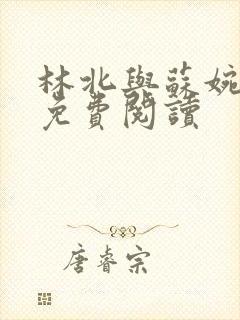 林北與蘇婉
免費閱讀
唐睿宗